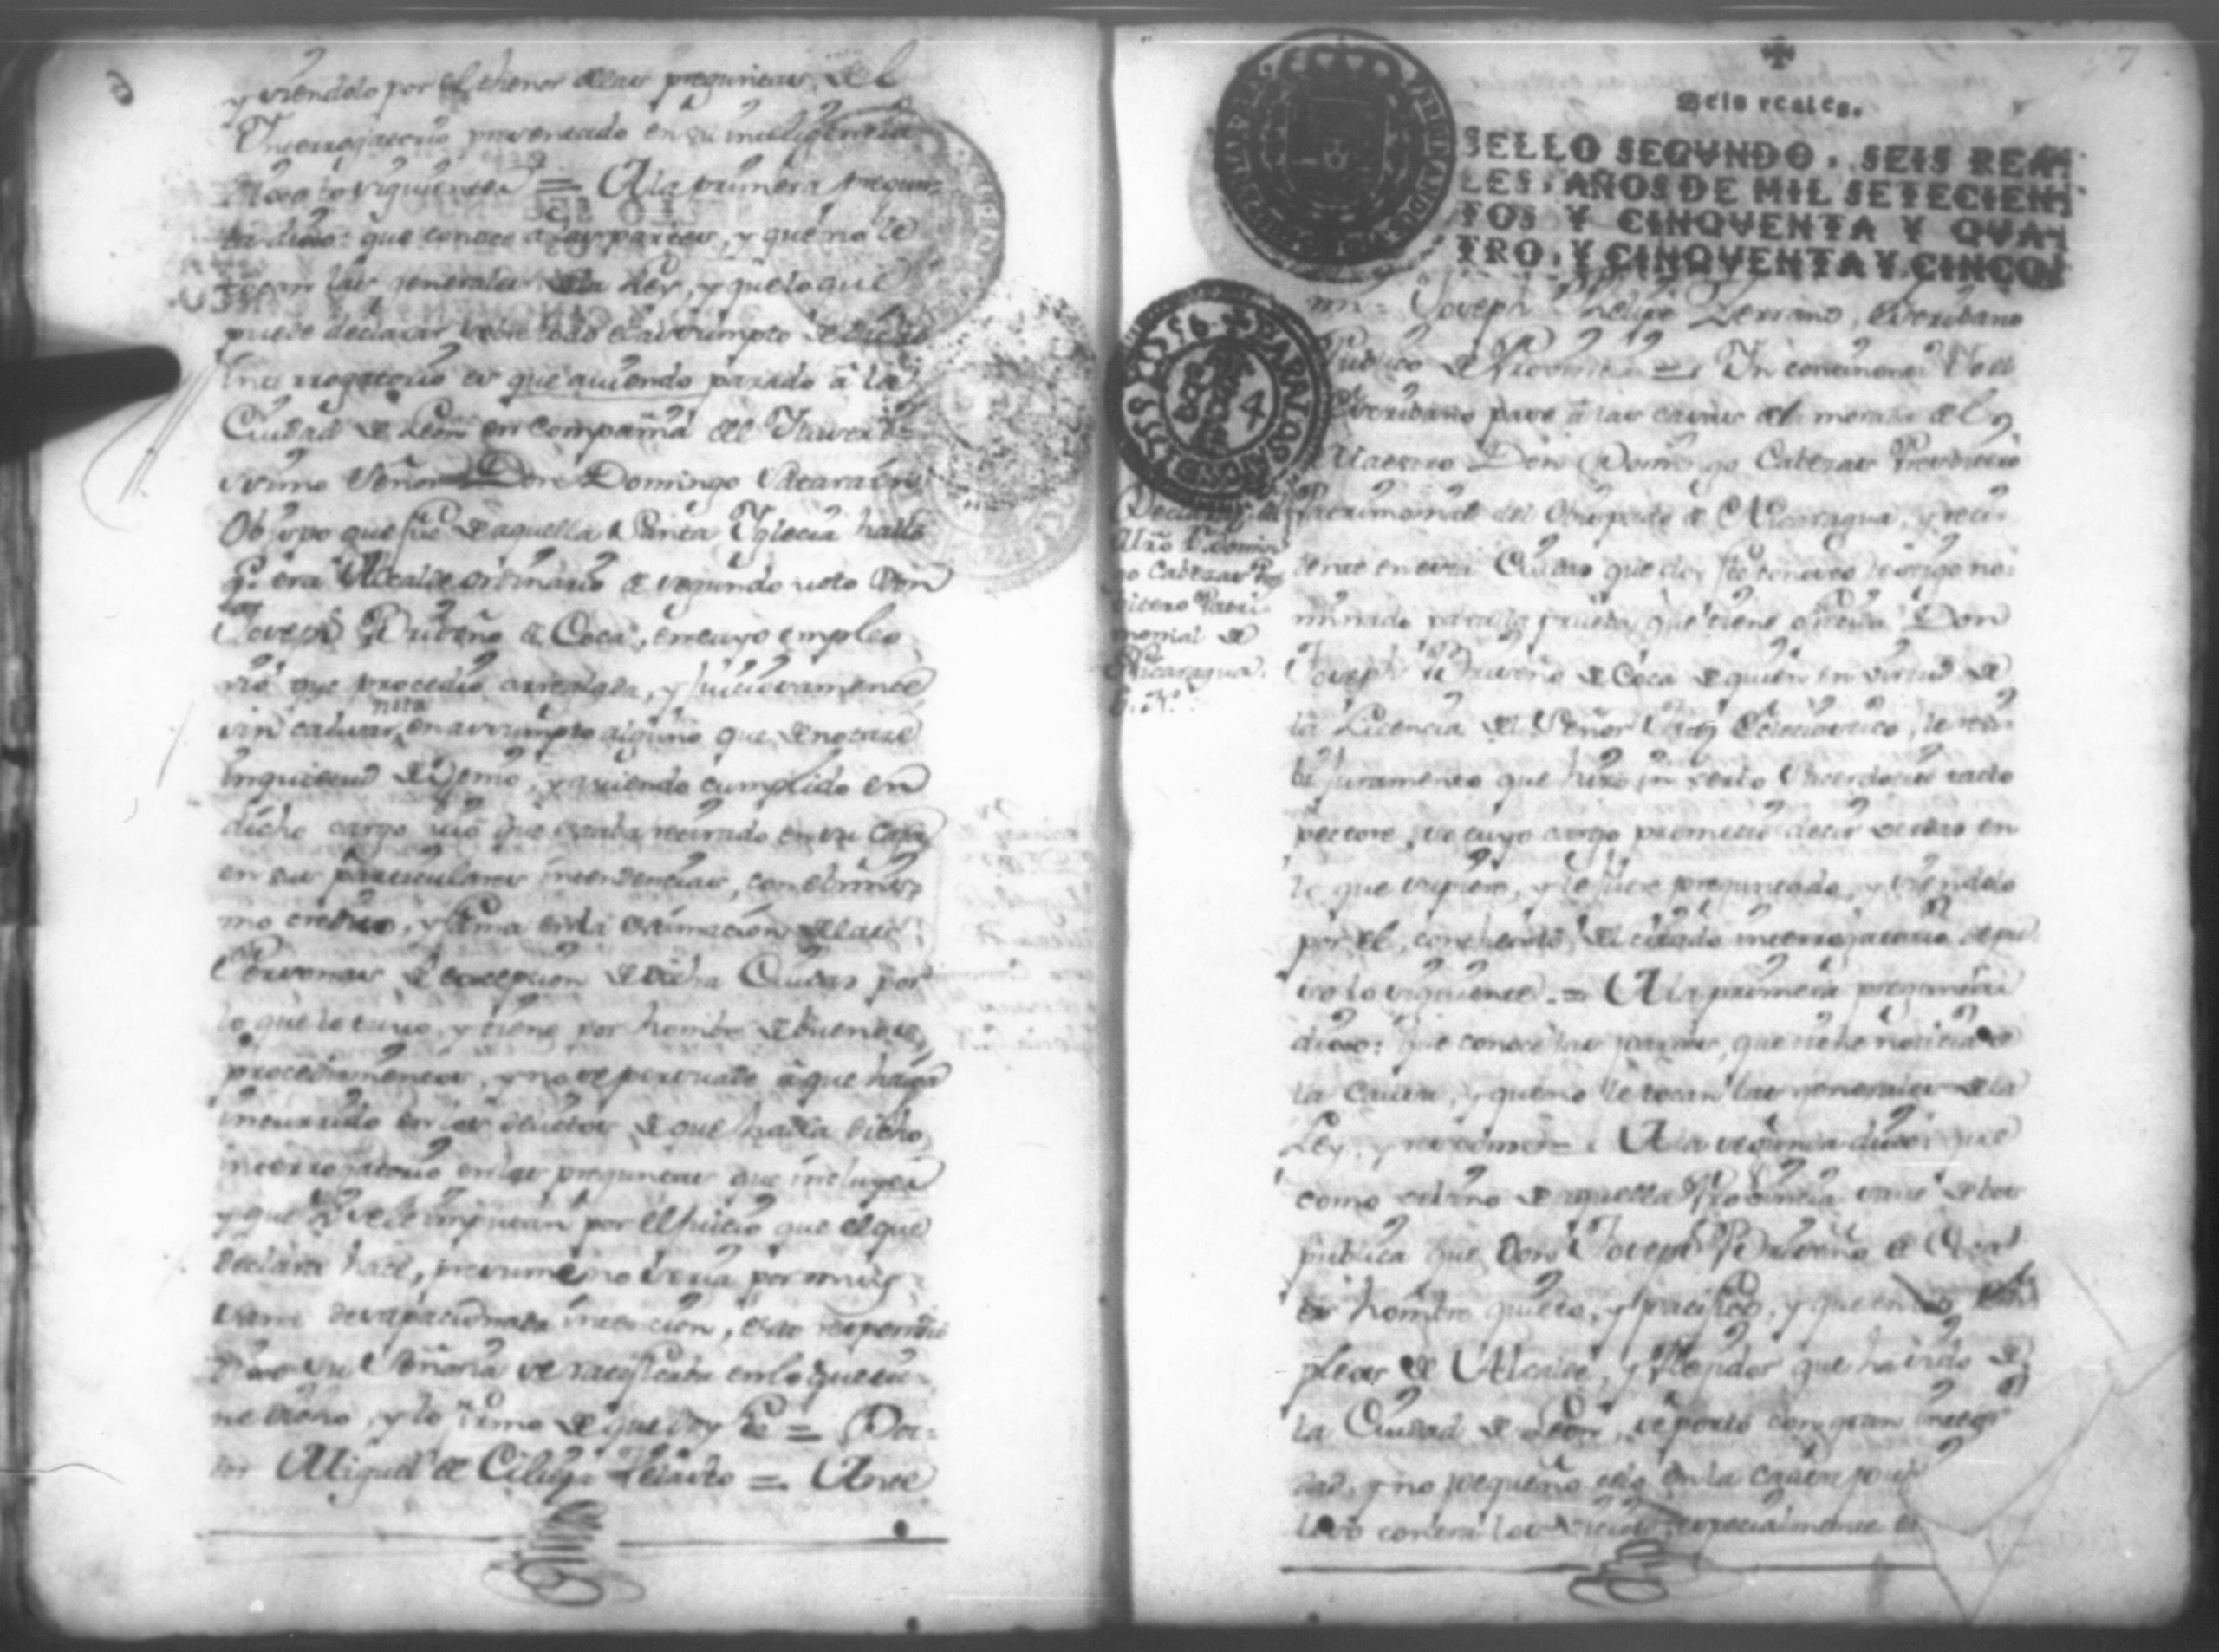 y siendolo por el thenor delas preguntas, del
Interrogatorio presentado en su inteligencia
dixo lo siguiente = A la primera pregun-
ta dixo: que conoce a las partes, y que no le
tocan las generales dela Ley, y que lo que
puede declarar sobre todo el assumpto de dicho
Interrogatorio es que aviendo pasado â la
Ciudad de Leon en compañia del Ilustri-
simo Señor Don Domingo Satarain
Obispo que fue de aquella Santa Yglecia hallô
q.e era Alcalde ordinario de segundo voto Don
Joseph Briseño de Coca, en cuyo empleo
viô que procedio arreglada, y juiciosamente
sin causar nota en assumpto alguno que denotase
inquietud de Genio, y aviendo cumplido en
dicho cargo viô que estaba retirado en su casa
en sus particulares intendencias, con el mis-
mo credito, y fama en la estimacion delas
Personas de excepcion de dicha Ciudad por
lo que lo tuvo, y tiene por hombre de buenos
procedimientos, y no se persuade â que haiga
incurrido en los delictos de que habla dicho
interrogatorio en las preguntas que incluye
y que se le imputan por el juicio que el que
declara hace, presume no seria por mui
sana desapacionada intencion, esto respondio
dixo su Señoria se ratificaba en lo que tie-
ne dicho, y lo firmo de que doy fee = Doc-
tor Miguel de Cilieza Velasco = Ante
7
Seis reales.
SELLO SEGVNDO, SEIS REA-
LES, AÑOS DE MIL SETECIEN-
TOS Y CINQVENTA Y QVA-
TRO, Y CINQVENTA Y CINCO.
mi = Joseph Phelipe Serrano, Escribano
Publico de Provincia = In continenti Yo el
Escribano pase â las casas dela morada del
Maestro Don Domingo Cabezas Presbitero
Patrimonial del Obispado de Nicaragua, y resi-
dente en esta Ciudad que doy fee conosco testigo no-
minado para la prueba que tiene ofrecida Don
Joseph Briseño de Coca de quien en virtud de
la Licencia del Señor Juez Eclesiastico, le reci-
bi juramento que hizo in verbo Sacerdotis tacto
pectore, so cuyo cargo prometio decir verdad en
lo que supiere, y le fuere preguntado, y siendolo
por el contexto, del citado interrogatorio depu-
so lo siguiente = A la primera pregunta
dixo: que conoce las partes, que tiene noticia de
la causa, y que no le tocan las generales dela
Ley, y responde = A la segunda dixo: que
como vecino de aquella Provincia save de vos
publica que Don Joseph Briseño de Coca
es hombre quieto, y pacifico, y que en los em-
pleos de Alcalde, y Regidor que ha sido de
la Ciudad de Leon, se portô con gran integri
dad, y no pequeño celo en la causa publ
celo contra los vicios, especialmente
Declar.n del
Mrô D. Domin
go Cabezas Pres
bitero Patri-
monial de
Nicaragua.